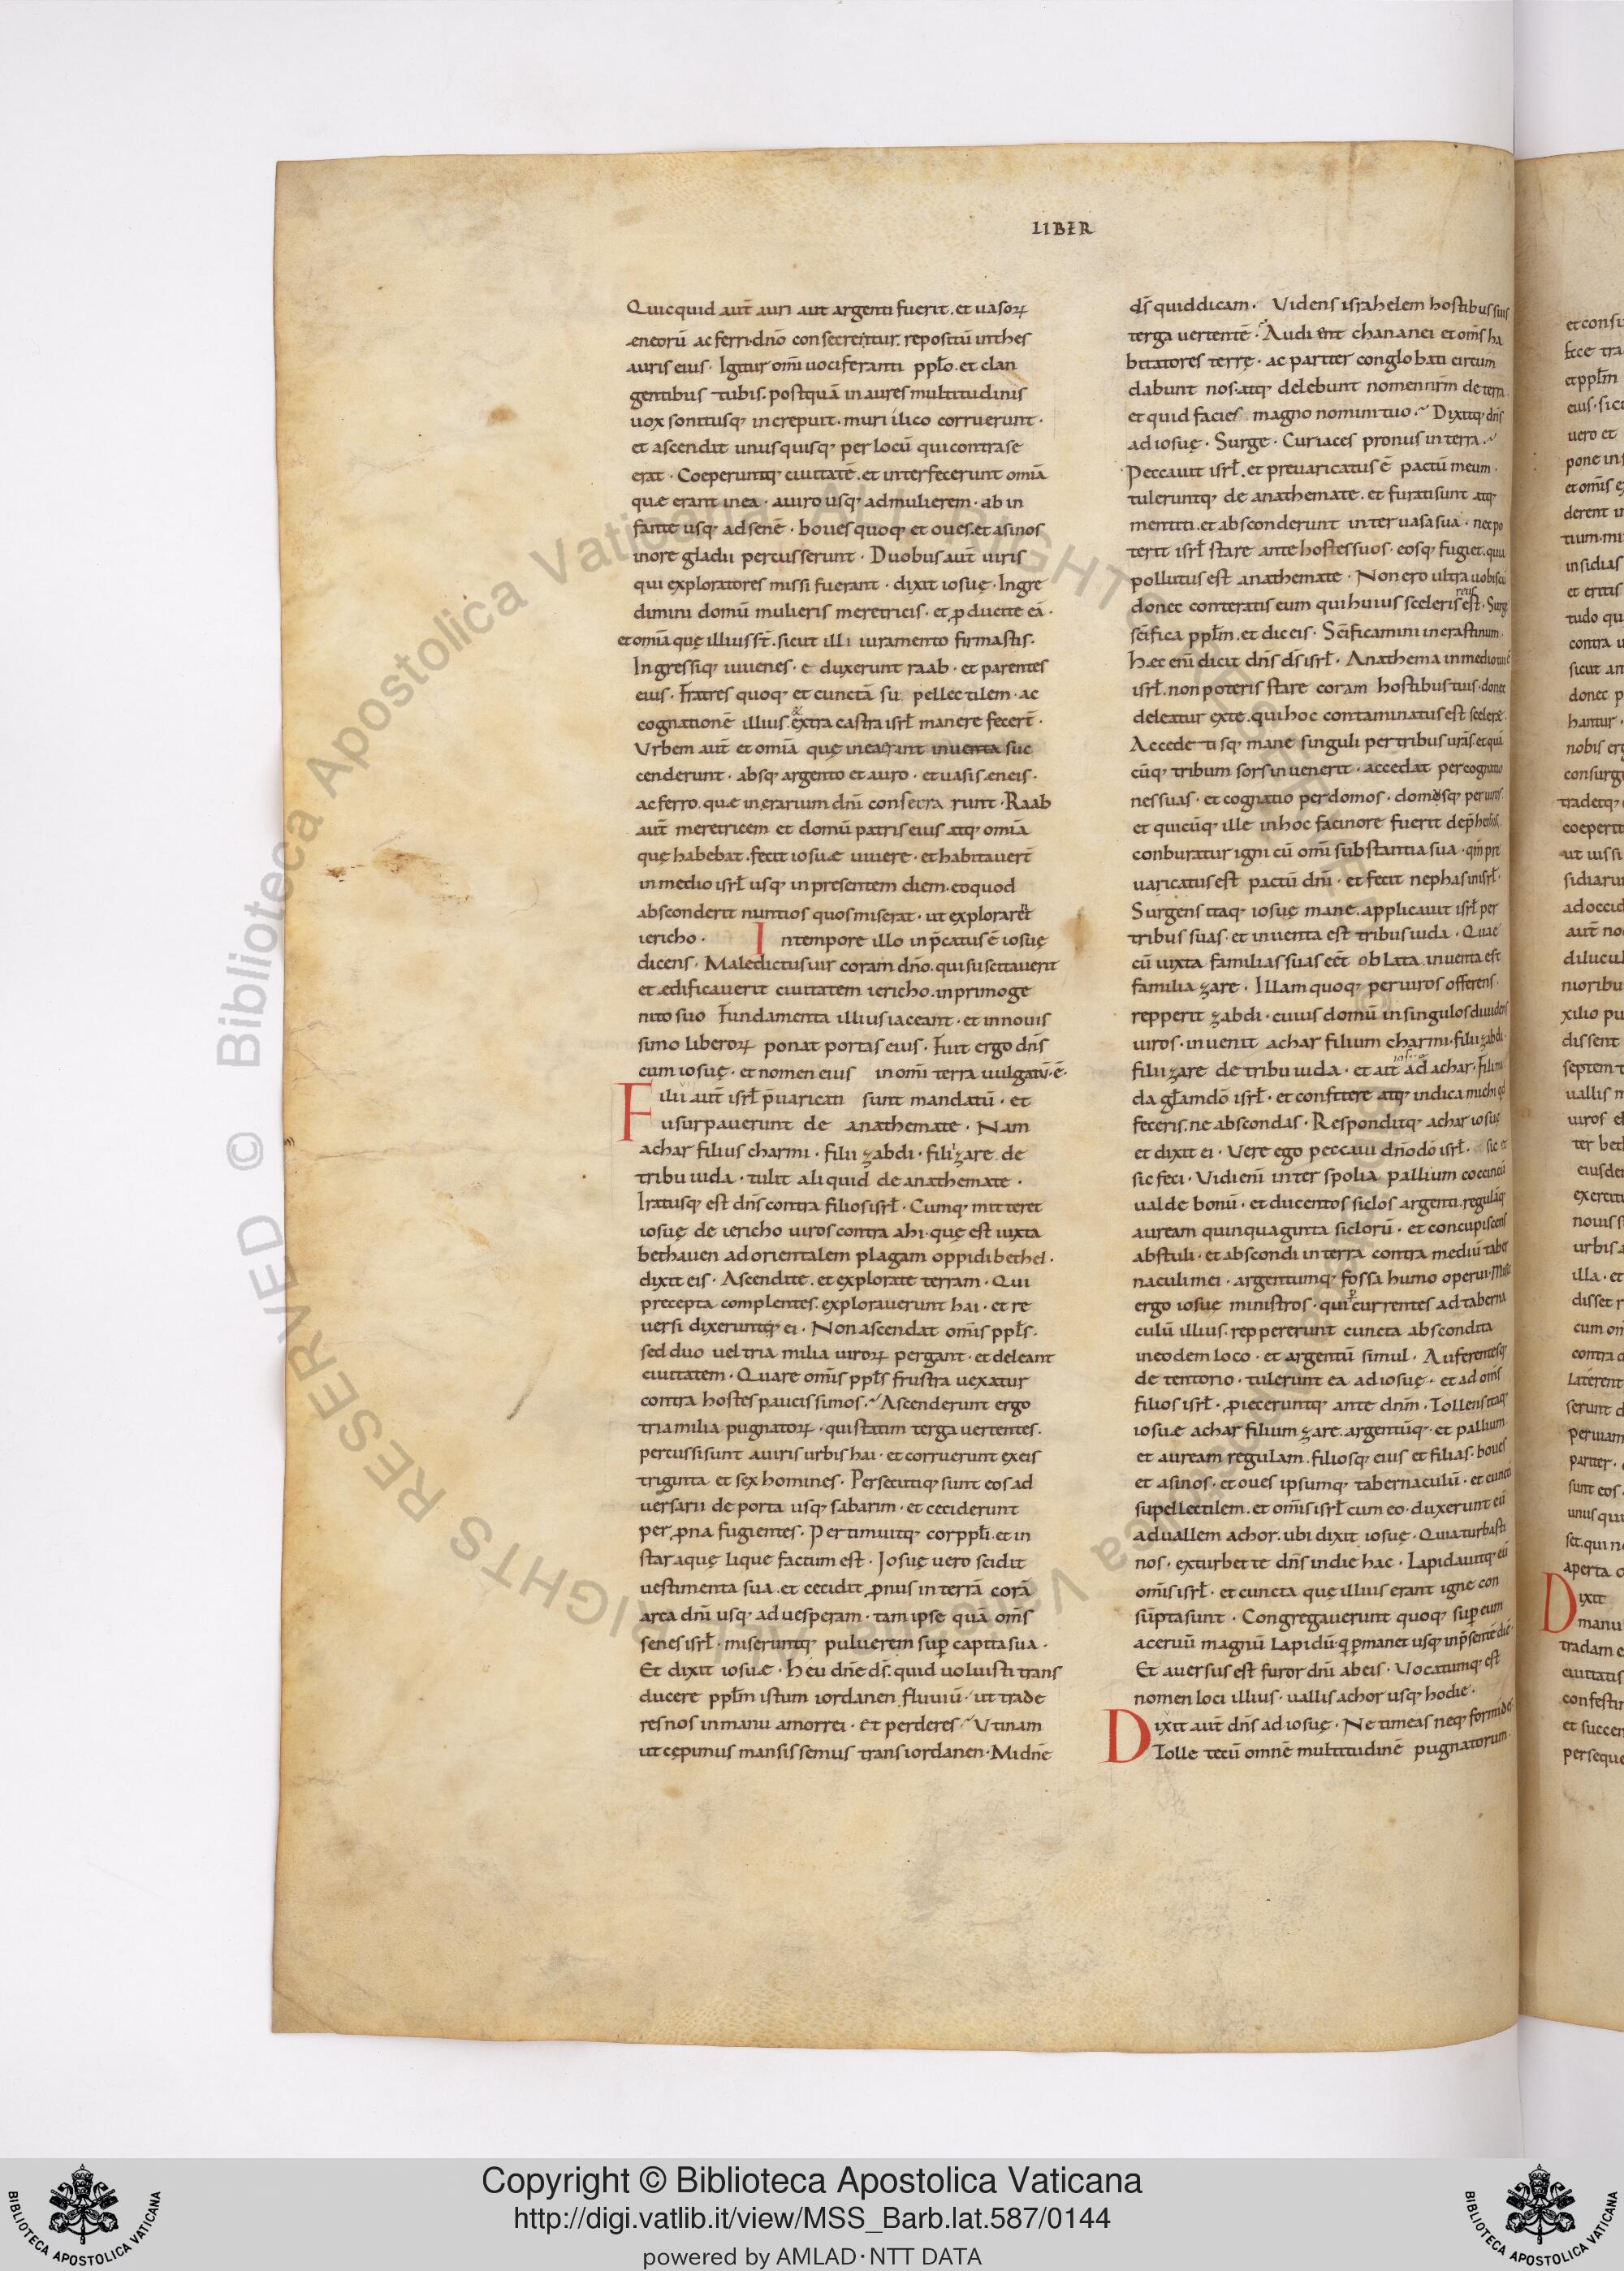 LIBER
Quicquid aut̄ auri aut argenti fuerit. et uasoꝝ
eneorū ac ferri. dn̄o consecrentur. repositū in thes
auris eius. Igitur om̄i uociferanti ppl̄o. et clan
gentibus tubis. postquā in aures multitudinis
uox sonitusq; increpuit. muri ilico corruerunt.
et ascendit unusquisq; per locū qui contra se
erat. Coeperuntq; ciuitatē. et interfecerunt omīa
quæ erant in ea. a uiro usq; ad mulierem. ab in
fante usq; ad senē. boues quoq; et oues. et asinos
in ore gladii percusserunt. Duobus aut̄ uiris
qui exploratores missi fuerant. dixit iosuę. Ingre
dimini domū mulieris meretricis. et ꝓducite eā.
et omīa quę illius st̄. sicut illi iuramento firmastis.
Ingressiq; iuuenes. eduxerunt raab. et parentes
eius. fratres quoq; et cunctā supellectilem. ac
cognationē illius. & extra castra isrł manere fecer̄t.
Vrbem aut̄ et omīa quę in ea erant inuenta suc
cenderunt. absq; argento et auro. et uasis æneis.
ac ferro. quæ in ærarium dn̄i consecrarunt. Raab
aut̄ meretricem et domū patris eius atq; omīa
quę habebat. fecit iosuæ uiuere. et habitauer̄t
in medio isrł usq; in presentem diem. eo quod
absconderit nuntios quos miserat. ut explorarent
iericho. In tempore illo inp̄catus ē iosuę
dicens. Maledictus uir coram dn̄o. qui suscitauerit
et ædificauerit ciuitatem iericho. in primoge
nito suo fundamenta illius iaceant. et in nouis
simo liberoꝝ ponat portas eius. Fuit ergo dn̄s
cum iosuę. et nomen eius in om̄i terra uulgatū. ē.
Filii aut̄ isrł p̄uaricati sunt mandatū. et
usurpauerunt de anathemate. Nam
achar filius charmi. filii zabdi. filii zare. de
tribu iuda. tulit aliquid de anathemate.
Iratusq; est dn̄s contra filios isrł. Cumq; mitteret
iosuę de iericho uiros contra ahi. quę est iuxta
bethauen ad orientalem plagam oppidi bethel.
dixit eis. Ascendite. et explorate terram. Qui
precepta complentes. explorauerunt hai. et re
uersi dixeruntq; ei. Non ascendat om̄is ppl̄s.
sed duo uel tria milia uiroꝝ pergant. et deleant
ciuitatem. Quare om̄is ppl̄s frustra uexatur
contra hostes paucissimos. Ascenderunt ergo
tria milia pugnatoꝝ. qui statim terga uertentes.
percussi sunt a uiris urbis hai. et corruerunt ex eis
triginta et sex homines. Persecutiq; sunt eos ad
uersarii de porta usq; sabarim. et ceciderunt
per ꝓna fugientes. Pertimuitq; cor ppl̄i. et in
star aquę liquefactum est. Iosuę uero scidit
uestimenta sua. et cecidit ꝓnus in terrā corā
arca dn̄i usq; ad uesperam. tam ipse quā om̄s
senes isrł. miseruntq; puluerem suꝑ capita sua.
Et dixit iosuæ. Heu dn̄e ds̄. quid uoluisti trans
ducere ppl̄m istum iordanen fluuiū. ut trade
res nos in manu amorrei. et perderes. Vtinam
ut cępimus mansissemus trans iordanen. Mi dn̄e
ds̄ quid dicam. Videns israhelem hostibus suis
terga uertentē. Audient chananei et om̄s ha
bitatores terrę. ac pariter conglobati circum
dabunt nos. atq; delebunt nomen nr̄m de terra.
et quid facies magno nomini tuo. Dixitq; dn̄s
ad iosuę. Surge. Cur iaces pronus in terra.
Peccauit isrł. et preuaricatus ē pactū meum.
tuleruntq; de anathemate. et furati sunt atq;
mentiti. et absconderunt inter uasa sua. nec po
terit isrł stare ante hostes suos. eosq; fugiet. quia
pollutus est anathemate. Non ero ultra uobiscū
donec conteratis eum qui huius sceleris reus est. Surge
sc̄ifica ppl̄m. et dic eis. Sc̄ificamini in crastinum.
Hæc eni dicit dn̄s ds̄ isrł. Anathema in medio tui ē
isrł. non poteris stare coram hostibus tuis. donec
deleatur ex te. qui hoc contaminatus est scelere.
Accedetisq; mane singuli per tribus ur̄as. et quā
cūq; tribum sors inuenerit. accedat per cognatio
nes suas. et cognatio per domos. domusq; per uiros.
et quicūq; ille in hoc facinore fuerit dep̄hensus.
conburatur igni cū om̄i substantia sua. qm̄ pre
uaricatus est pactū dn̄i. et fecit nephas in isrł.
Surgens itaq; iosuę mane. applicauit isrł per
tribus suas. et inuenta est tribus iuda. Quae
cū iuxta familias suas eēt oblata. inuenta est
familia zare. Illam quoq; per uiros offerens.
repperit zabdi. cuius domū in singulos diuidens
uiros. inuenit achar filium charmi. filii zabdi.
filii zare de tribu iuda. et ait iosue ad achar. Fili mi
da gl̄am dn̄o isrł. et confitere atq; indica michi qd
feceris. ne abscondas. Responditq; achar iosuę
et dixit ei. Vere ego peccaui dn̄o dō isrł. sic et
sic feci. Vidi eni inter spolia pallium coccineū
ualde bonū. et ducentos siclos argenti. regulāq;
auream quinquaginta siclorū. et concupiscens
abstuli. et abscondi in terra contra mediū taber
naculi mei. argentumq; fossa humo operui. Misit
ergo iosuę ministros. qui currentes ad taberna
culū illius. reppererunt cuncta abscondita
in eodem loco. et argentū simul. Auferentesq;
de tentorio. tulerunt ea ad iosuę. et ad om̄s
filios isrł. ꝓieceruntq; ante dn̄m. Tollens itaq;
iosuæ achar filium zare. argentūq; et pallium.
et auream regulam. filiosq; eius et filias. boues
et asinos. et oues ipsumq; tabernaculū. et cunctā
supellectilem. et om̄is isrł cum eo. duxerunt eū
ad uallem achor. ubi dixit iosuę. Quia turbasti
nos. exturbet te dn̄s in die hac. Lapidauitq; eū
om̄is isrł. et cuncta quę illius erant igne con
sūpta sunt. Congregauerunt quoq; suꝑ eum
aceruū magnū lapidū. q ꝑmanet usq; in p̄sentē diē.
Et auersus est furor dn̄i ab eis. Vocatumq; est
nomen loci illius. uallis achor usq; hodie.
Dixit aut̄ dn̄s ad iosuę. Ne timeas neq; formides
Tolle tecū omnē multitudinē pugnatorum.
et consu
ecce tra
et ppl̄m
eius. sicu
uero et
pone in
et om̄is e
derent in
tium. mi
insidias
et eritis
tudo qu
contra u
sicut an
donec p
hantur.
nobis erg
consurg
tradetq;
coeperit
ut iussi
sidiarum
ad occid
aut̄ no
dilucul
nioribu
xilio pu
dissent
septem
uallis m
uiros el
ter beth
eiusdem
exercitu
nouiss
urbis a
illa. et
disset r
cum om
contra d
laterent
serunt d
per uiam
pariter.
sunt eos.
unusqui
set. qui n
aperta o
Dixit
manu
tradam e
ciuitatis
confestin
et succen
perseque
© Biblioteca Apostolica Vaticana ALL RIGHTS RESERVED
Copyright © Biblioteca Apostolica Vaticana
http://digi.vatlib.it/view/MSS_Barb.lat.587/0144
powered by AMLAD·NTT DATA
BIBLIOTECA APOSTOLICA VATICANA
BIBLIOTECA APOSTOLICA VATICANA